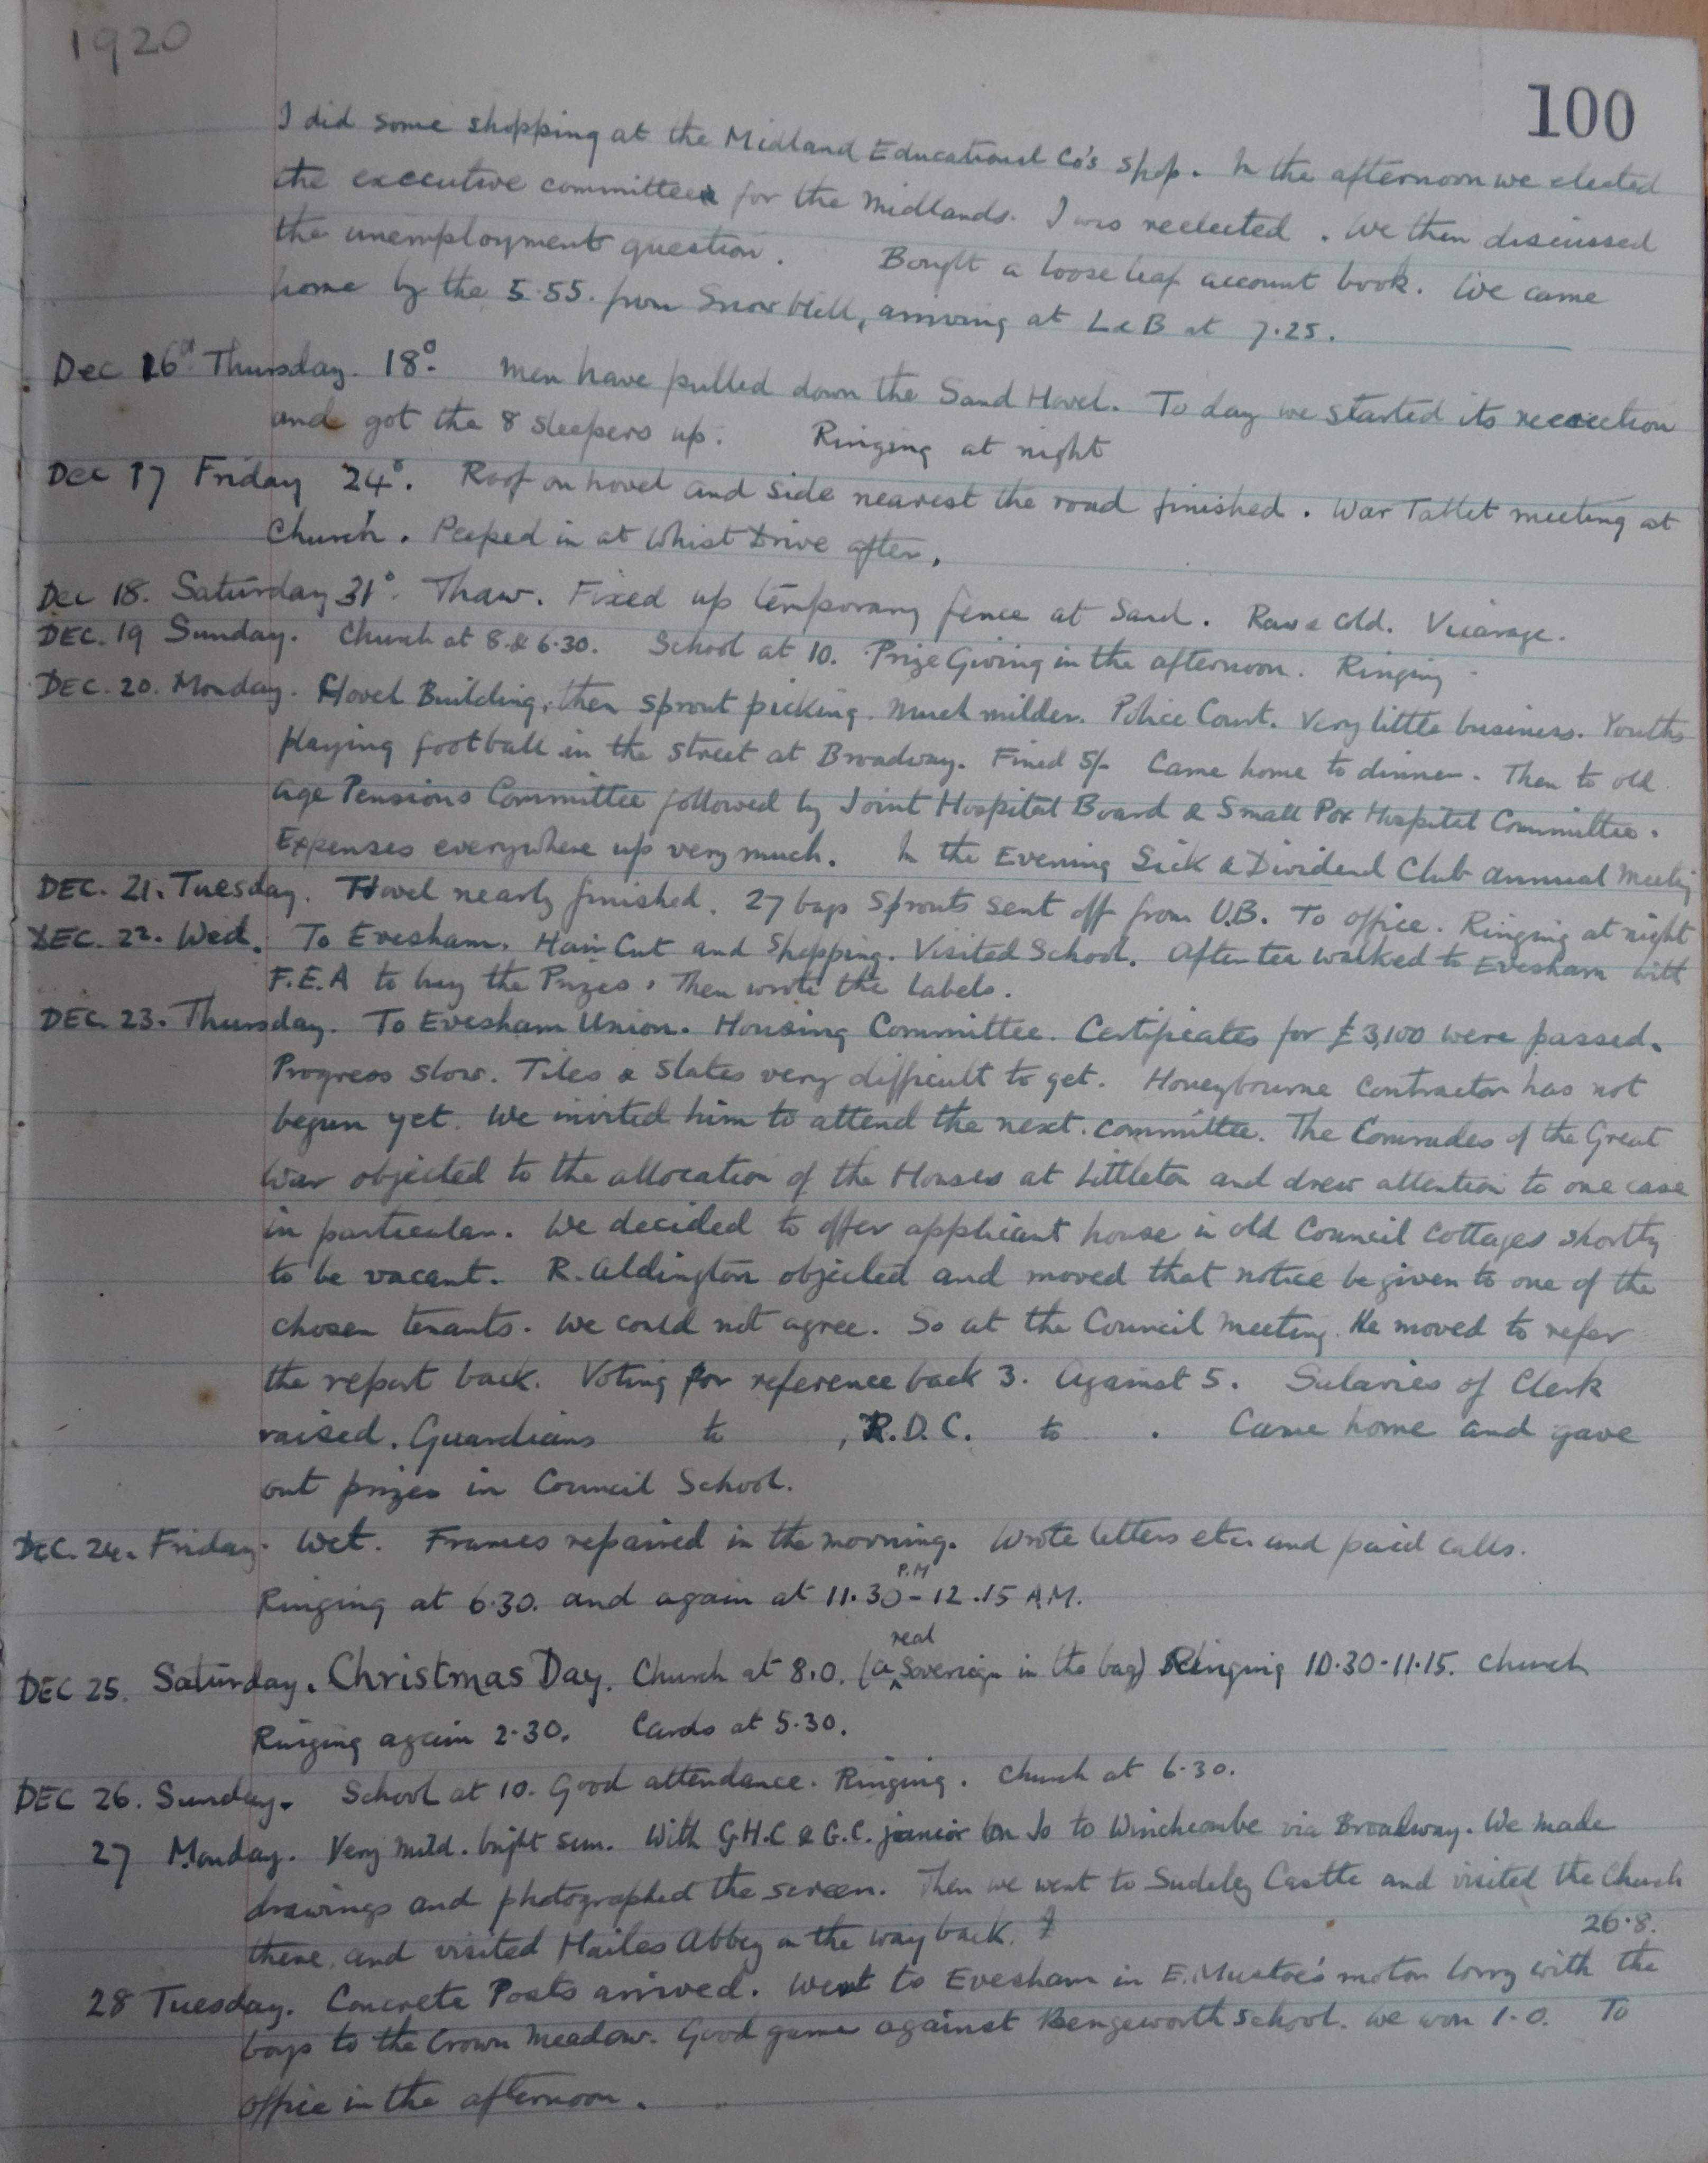 1920
100
I did some shopping at the Midland Educational Co's shop. In the afternoon we elected
the executive committee for the Midlands. I was reelected. We then discussed
the unemployment question. Bought a loose leaf account book. We came
home by the 5.55. from Snow Hill, arriving at L & B at 7.25.
Dec 16 Thursday. 18°. Men have pulled down the Sand Hovel. To day we started its reerection
and got the 8 sleepers up. Ringing at night
Dec 17 Friday 24°. Roof on hovel and side nearest the road finished. War Tablet meeting at
Church. Peeped in at Whist Drive after.
Dec 18. Saturday 31°. Thaw. Fixed up temporary fence at Sand. Raw & Cold. Vicarage.
DEC. 19 Sunday. Church at 8. & 6.30. School at 10. Prize Giving in the afternoon. Ringing.
DEC. 20. Monday. Hovel Building, then sprout picking. Much milder. Police Court. Very little business. Youths
playing football in the street at Broadway. Fined 5/- Came home to dinner. Then to old
age Pensions Committee followed by Joint Hospital Board & Small Pox Hospital Committee.
Expenses everywhere up very much. In the Evening Sick & Dividend Club annual Meeting
DEC. 21. Tuesday. Hovel nearly finished. 27 bags Sprouts sent off from U.B. To office. Ringing at night
DEC. 22. Wed. To Evesham. Hair Cut and Shopping. Visited School. After tea walked to Evesham with
F.E.A to buy the Prizes. Then wrote the Labels.
DEC. 23. Thursday. To Evesham Union. Housing Committee. Certificates for £3,100 were passed.
Progress slow. Tiles & Slates very difficult to get. Honeybourne Contractor has not
begun yet. We invited him to attend the next committee. The Comrades of the Great
War objected to the allocation of the Houses at Littleton and drew attention to one case
in particular. We decided to offer applicant house in old Council Cottages shortly
to be vacant. R. Aldington objected and moved that notice be given to one of the
chosen tenants. We could not agree. So at the Council Meeting. He moved to refer
the report back. Voting for reference back 3. Against 5. Salaries of Clerk
raised. Guardians to , R.D.C. to . Came home and gave
out prizes in Council School.
DEC. 24. Friday. Wet. Frames repaired in the morning. Wrote letters etc. and paid calls.
Ringing at 6.30. and again at 11.30 P.M - 12.15 A.M.
DEC 25. Saturday. Christmas Day. Church at 8.0. (a real Sovereign in the bag) Ringing 10.30-11.15. Church
Ringing again 2.30. Cards at 5.30.
DEC 26. Sunday. School at 10. Good attendance. Ringing. Church at 6.30.
27 Monday. Very mild. bright sun. With G.H.C & G.C. junior to Winchcombe via Broadway. We made
drawings and photographed the screen. Then we went to Sudeley Castle and visited the Church
there, and visited Hailes Abbey on the way back.
26.8.
28 Tuesday. Concrete Posts arrived. Went to Evesham in E. Mustoe's motor lorry with the
boys to the Crown Meadow. Good game against Bengeworth School. We won 1-0. To
office in the afternoon.